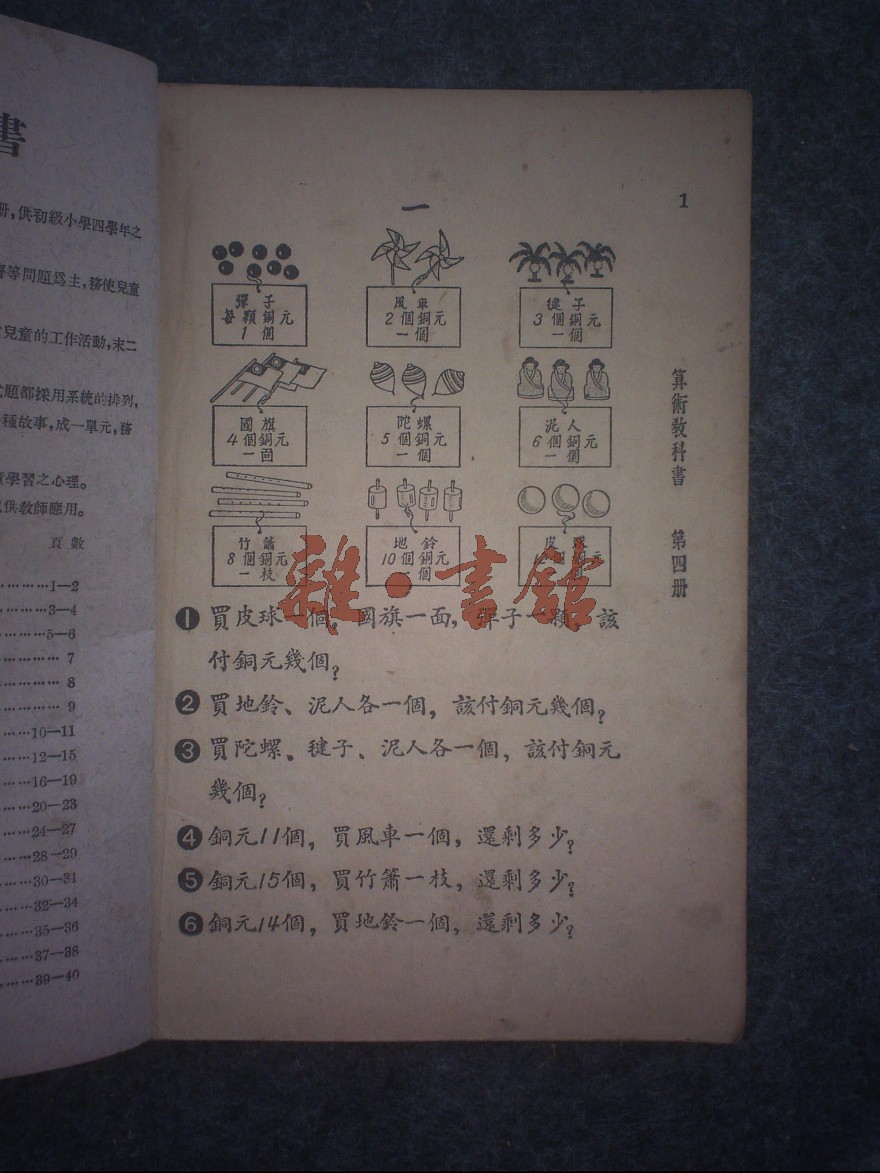 書
册，供初級小學四學年之
等問題爲主，務使兒童
兒童的工作活動，末二
題都採用系統的排列，
種故事，成一單元，務
學習之心理。
供教師應用。
頁數
1—2
3—4
5—6
7
8
9
10—11
12—15
16—19
20—23
24—27
28—29
30—31
32—34
35—36
37—38
39—40
1
一
彈子
每顆銅元
1個
風車
2個銅元
一個
毽子
3個銅元
一個
國旗
4個銅元
一面
陀螺
5個銅元
一個
泥人
6個銅元
一個
竹簫
8個銅元
一枝
地鈴
10個銅元
一個
皮
銅元
雜·書館
❶買皮球一個，國旗一面，彈子一顆，該
付銅元幾個？
❷買地鈴、泥人各一個，該付銅元幾個？
❸買陀螺、毽子、泥人各一個，該付銅元
幾個？
❹銅元11個，買風車一個，還剩多少？
❺銅元15個，買竹簫一枝，還剩多少？
❻銅元14個，買地鈴一個，還剩多少？
算術教科書 第四册